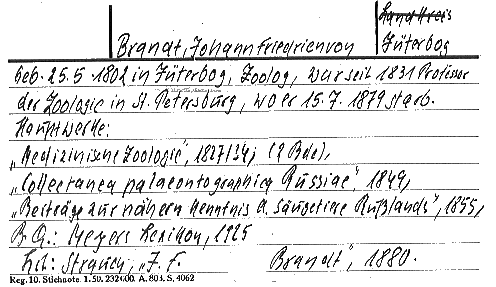 Landkreis
Brandt, Johann Friedrich von Jüterbog
Geb. 25.5 1802 in Jüterbog, Zoolog, war seit 1831 Professor
der Zoologie in St. Petersburg, wo er 15.7. 1879 starb.
Hauptwerke:
„Medizinische Zoologie", 1827/34, (2 Bde),
„Collectanea palaeontographica Russiae", 1849,
„Beiträge zur nähern Kenntnis d. säugetiere Rußlands", 1855,
B.Q.: Meyers Lexikon, 1925
Lit: Strauch, „J. F. Brandt", 1880.
Reg. 10. Stichnote. 1. 50. 232400. A. 803. S. 4062